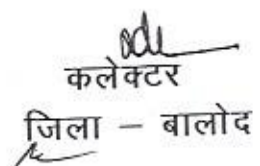 कलेक्टर
जिला – बालोद